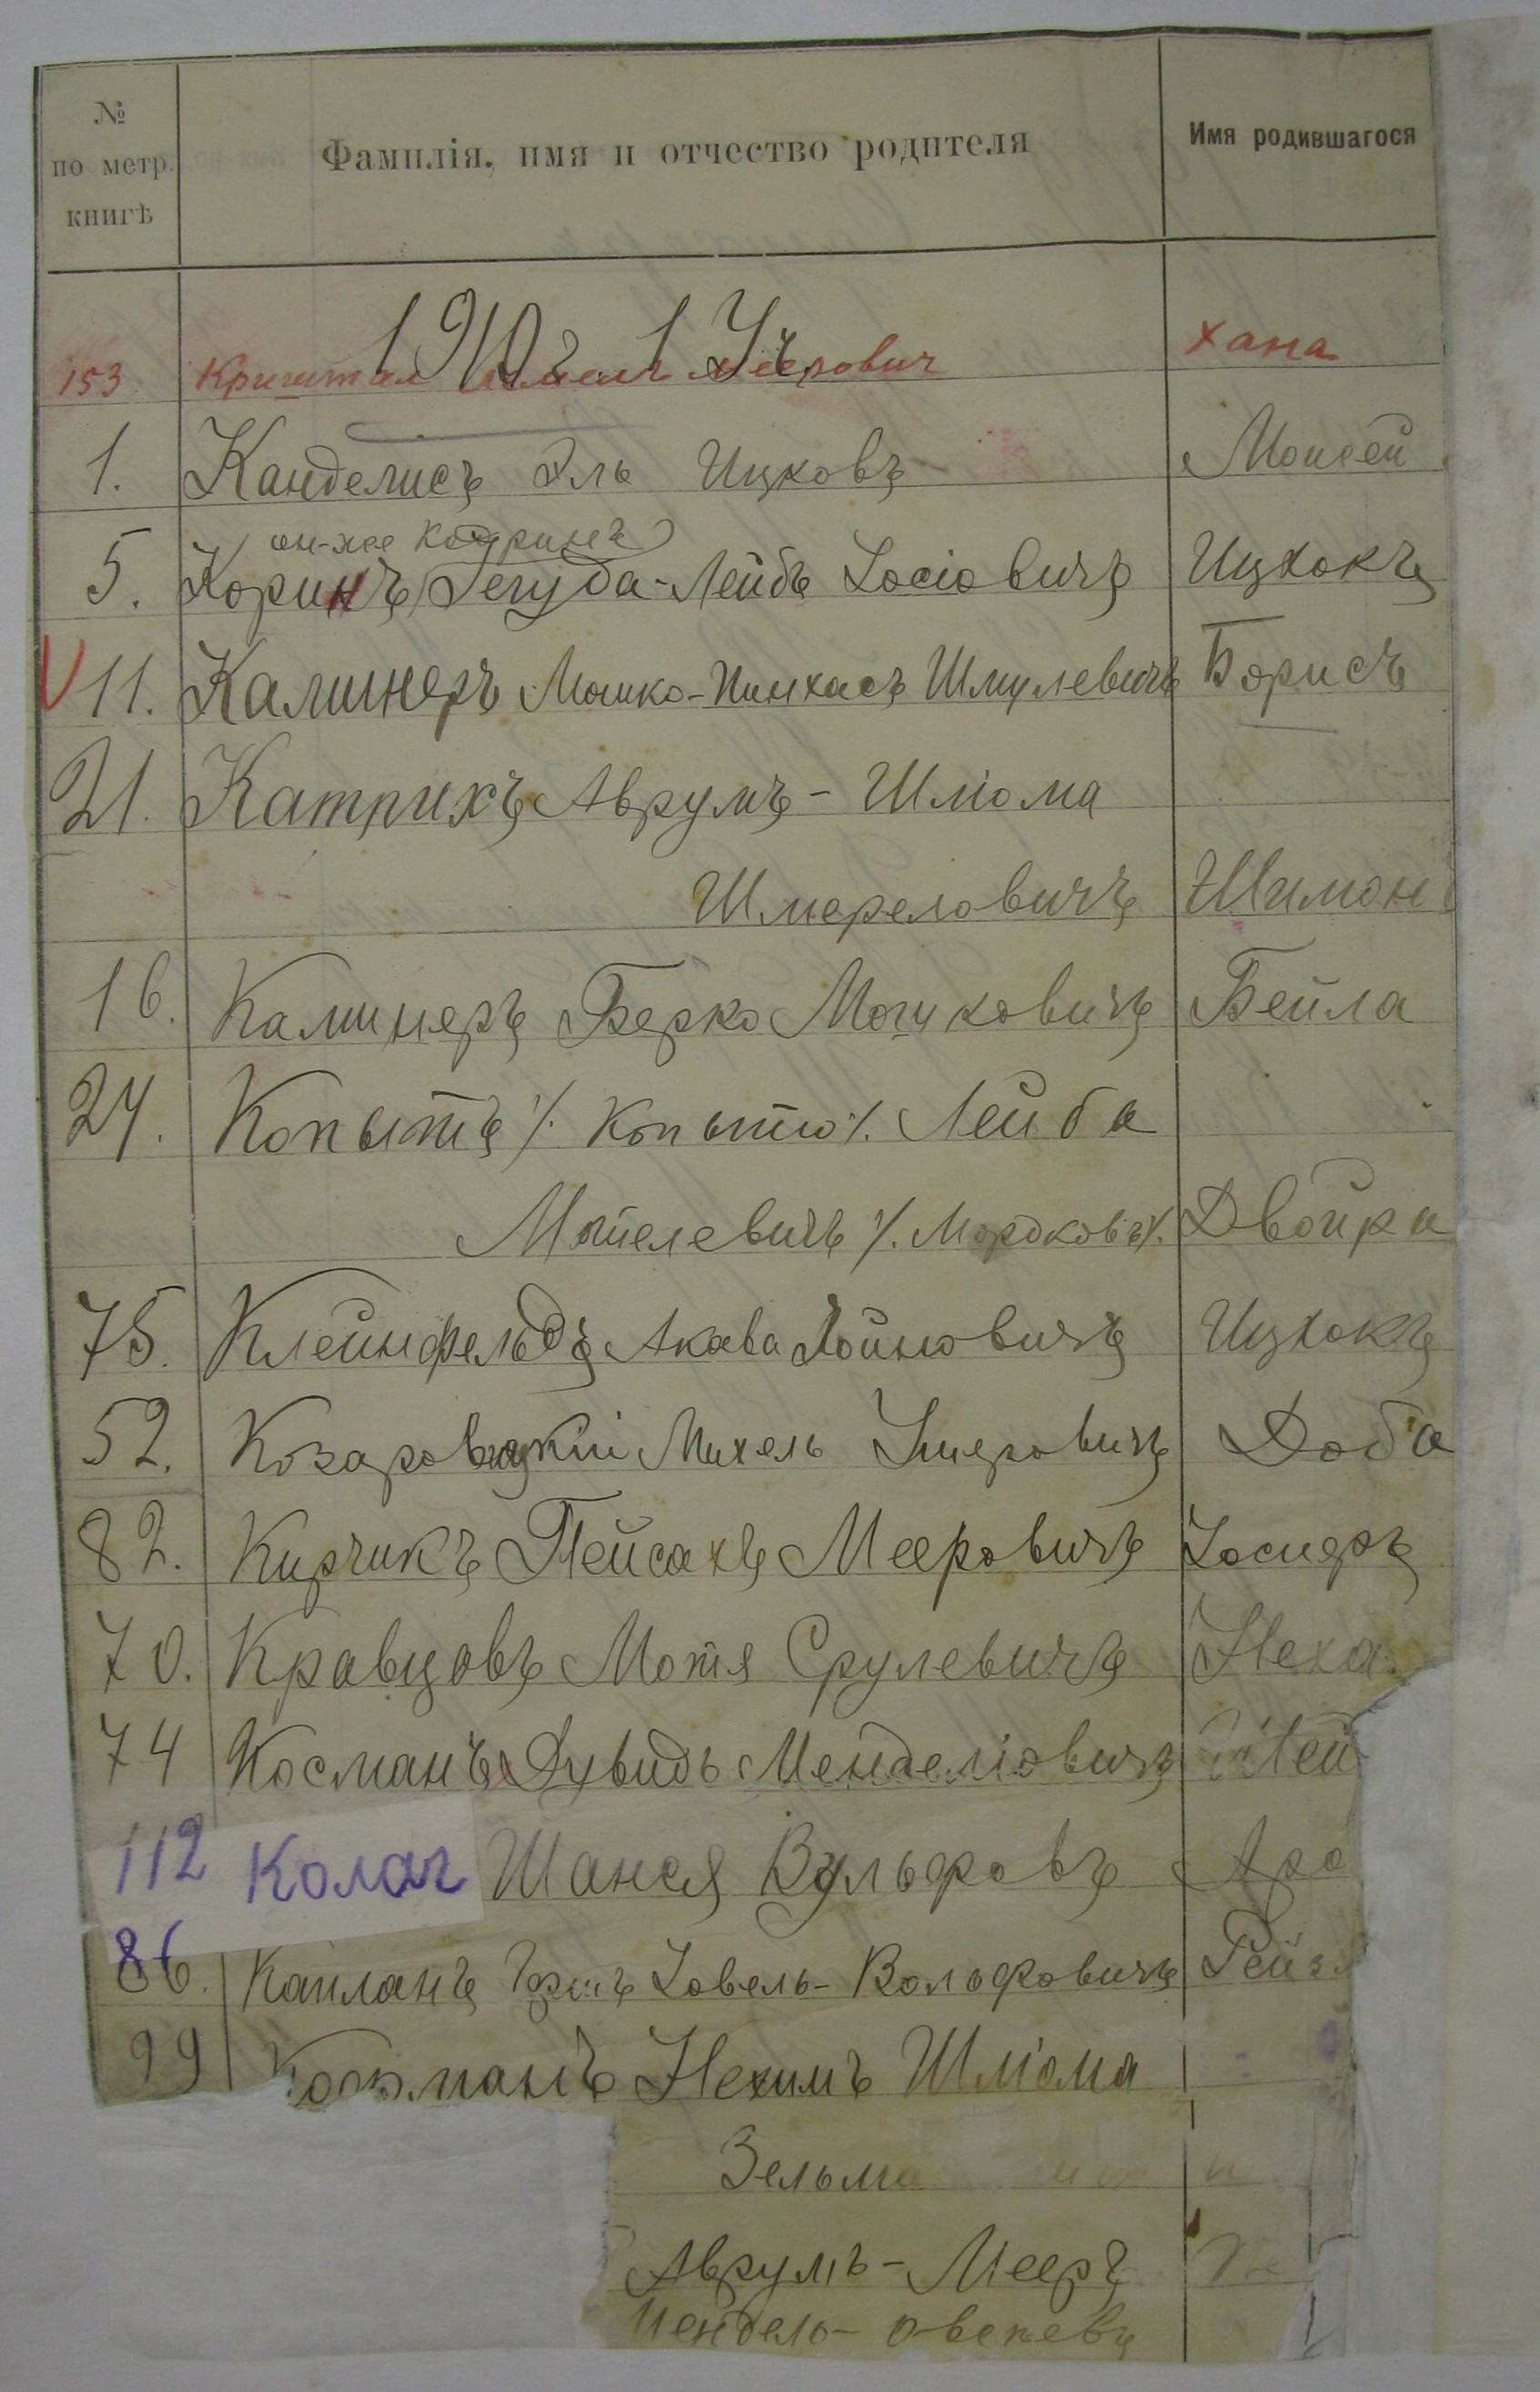 № по метр. книгѣ Фамилія, имя и отчество родителя Имя родившагося
1910 г. 1 Уч
153 Кришталл Меерович Хана
1. Канделисъ Эль Ицковъ Моисей
он-же Кодринъ
5. Коринъ Іегуда-Лейбъ Іосіовичъ Ицхокъ
V 11. Калинеръ Мошко-Пинхасъ Шмулевичъ Борисъ
21. Катрихъ Аврумъ-Шліома
Шмереловичъ Шимонъ
16. Калинеръ Берко Мошковичъ Бейла
24. Копытъ /. Копыто /. Лейба
Мотелевичъ /. Мордковъ /. Двойра
75. Клейнфельдъ Акава Хойновичъ Ицхокъ
52. Козаровицкій Михель Умеровичъ Доба
82. Кирчикъ Пейсахъ Мееровичъ Іосифъ
70. Кравцовъ Мотя Срулевичъ Неха
74 Косманъ Дувидъ Менделіовичъ
112 Колач Шанся Вульфовъ Аро
86. Капланъ Іовель-Вольфовичъ Рейз
99 Нехимъ Шліома
Зельма
Аврумъ-Мееръ
Мендель-Овсеевъ